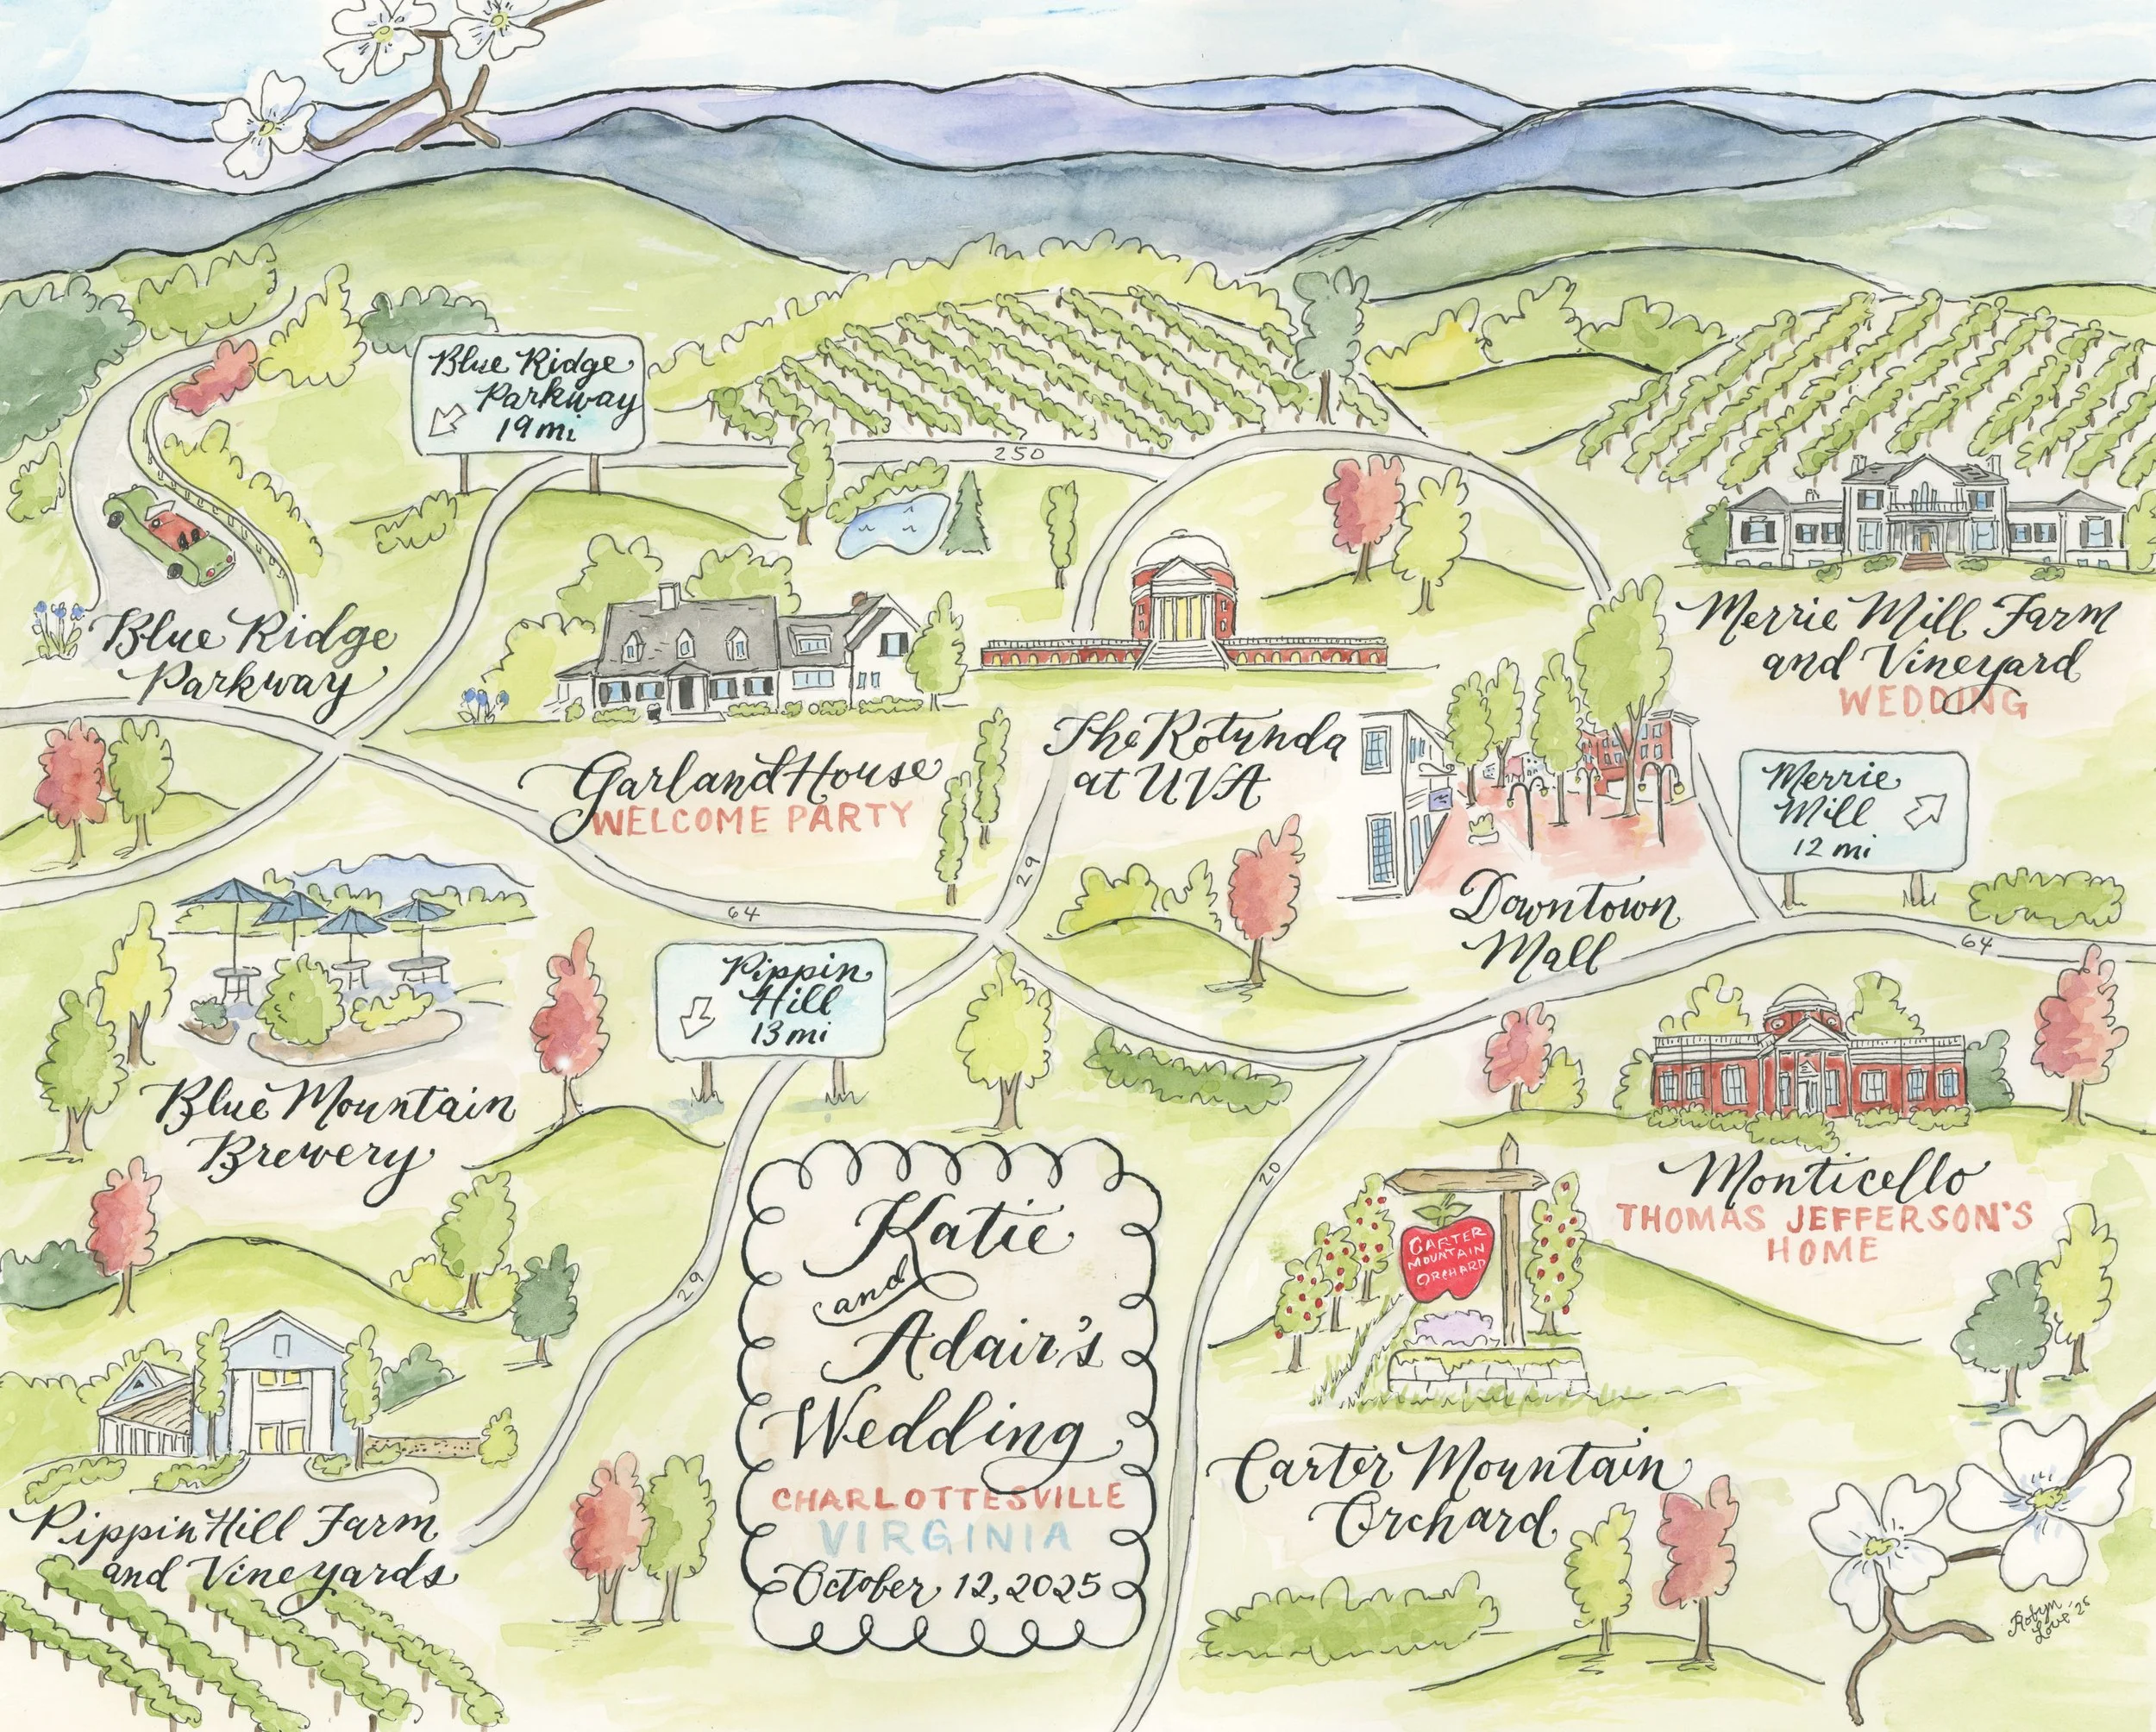 Blue Ridge
Parkway
19 mi
250
Blue Ridge
Parkway
Garland House
WELCOME PARTY
The Rotunda
at UVA
Merrie Mill Farm
and Vineyard
WEDDING
Merrie
Mill
12 mi
Downtown
Mall
29
64
64
Pippin
Hill
13 mi
Blue Mountain
Brewery
Monticello
THOMAS JEFFERSON'S
HOME
20
CARTER
MOUNTAIN
ORCHARD
Carter Mountain
Orchard
29
Pippin Hill Farm
and Vineyards
Katie
and
Adair's
Wedding
CHARLOTTESVILLE
VIRGINIA
October 12, 2025
Robyn
Love '25